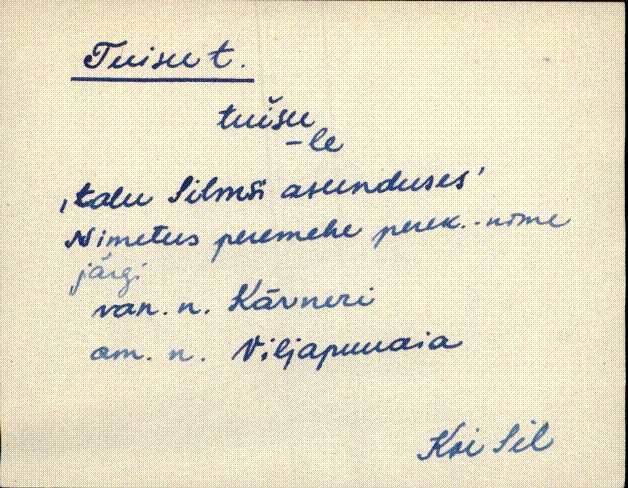 Tuisu t.
tuišu
-le
'talu Silmsi asunduses'
Nimetus peremehe perek.-nime
järgi
van. n. Kärneri
am. n. Viljapuuaia
Koi Sil